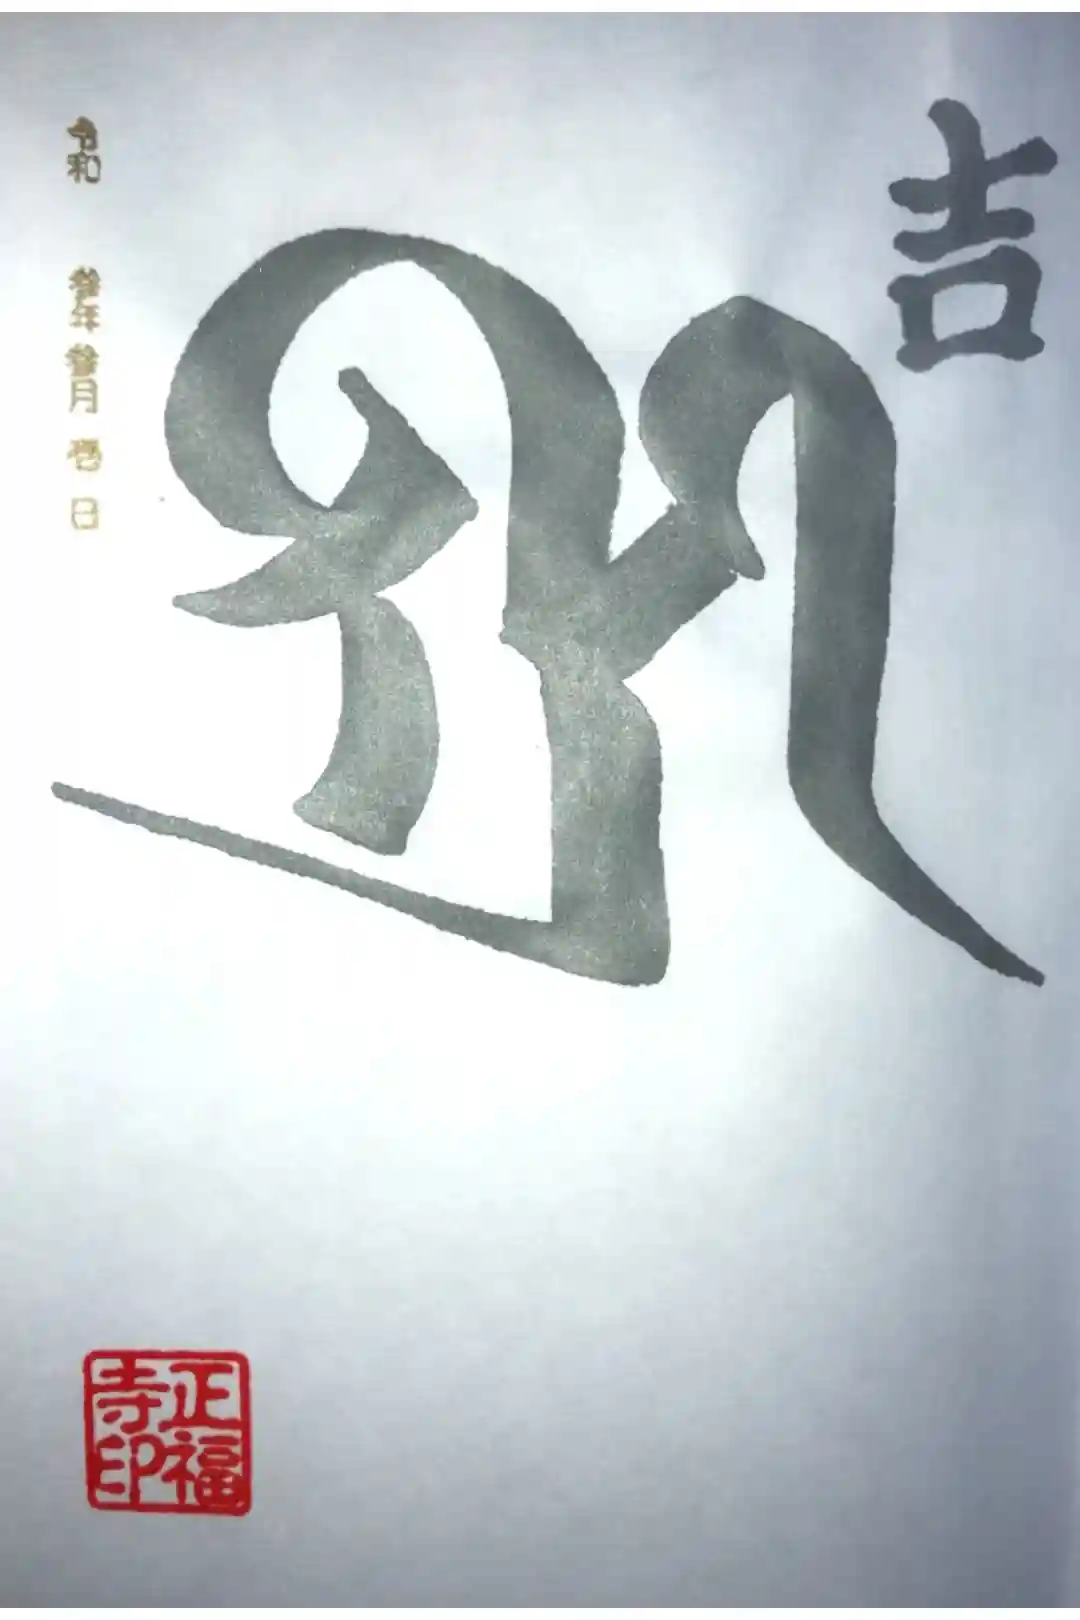 吉
令和 参年参月壱日
正福寺印